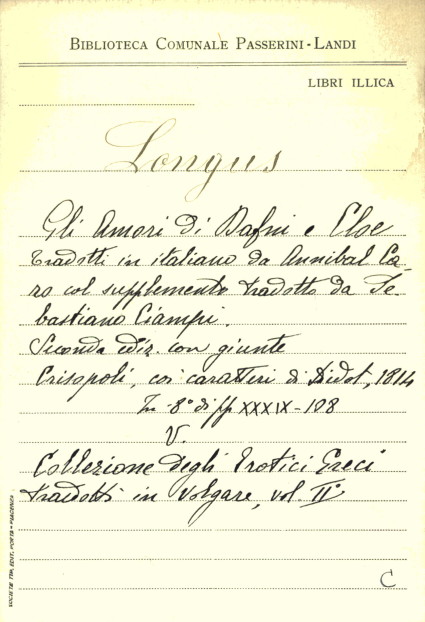 BIBLIOTECA COMUNALE PASSERINI-LANDI
LIBRI ILLICA
Longus
Gli Amori di Dafni e Cloe
tradotti in italiano da Annibal Ca-
ro col supplemento tradotto da Se-
bastiano Ciampi.
Seconda ediz. con giunte
Crisopoli, coi caratteri di Didot, 1814
In-8° di pp XXXIX-108
V.
Collezione degli Erotici Greci
tradotti in volgare, vol. II°
C
SOCIETÀ TIP. EDIT. PORTA - PIACENZA